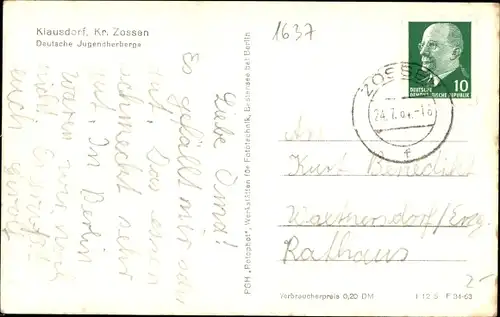 Klausdorf, Kr. Zossen
Deutsche Jugendherberge
1637
DEUTSCHE
DEMOKRATISCHE REPUBLIK
10
ZOSSEN
24.7.64.-18
f
Liebe Oma!
Es gefällt mir sehr
gut. Das essen
schmeckt sehr
gut. In Berlin
waren wir noch
nicht.
euch
PGH „Rotophot", Werkstätten für Fototechnik, Bestensee bei Berlin
An
Kurt Benedikt
Waltersdorf/Erzg.
Rathaus
2-
Verbraucherpreis 0,20 DM
I 12 5 F 34-63